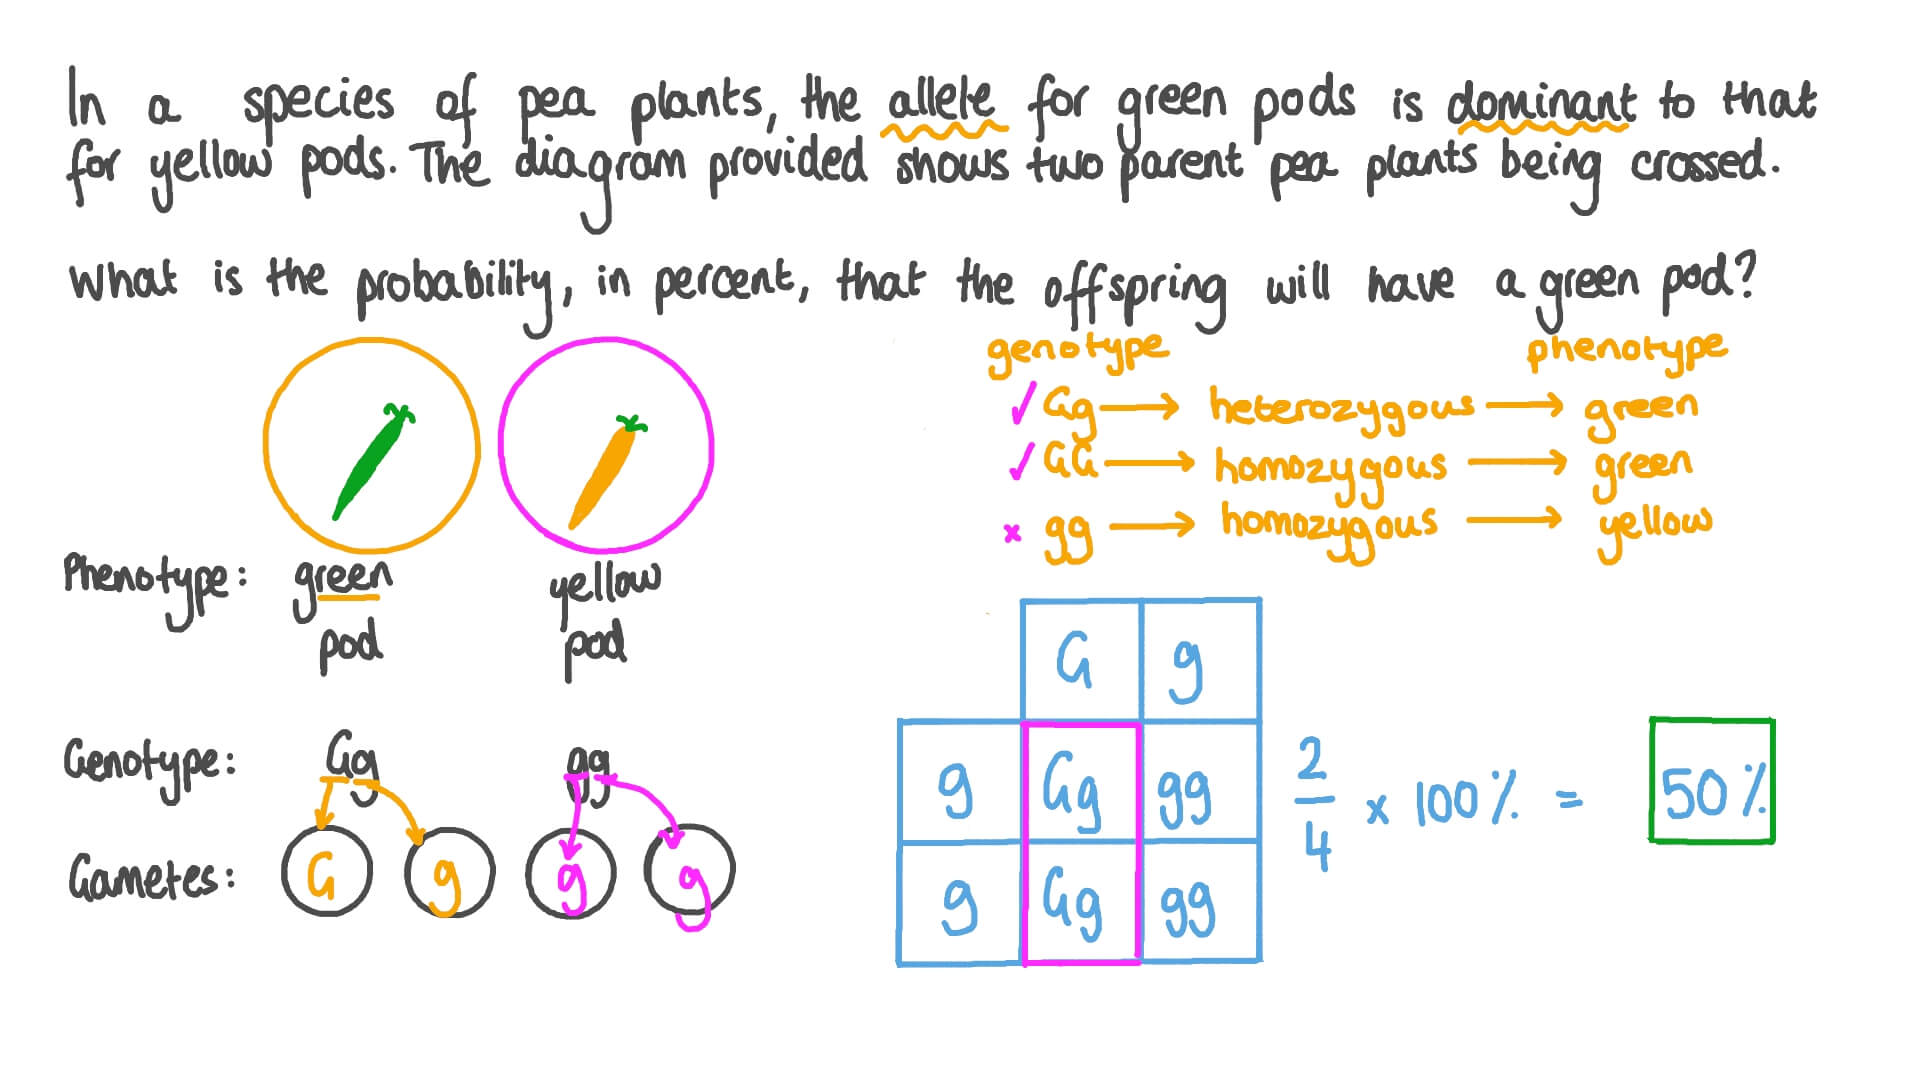 In a species of pea plants, the allele for green pods is dominant to that
for yellow pods. The diagram provided shows two parent pea plants being crossed.
What is the probability, in percent, that the offspring will have a green pod?
genotype phenotype
✓ Gg → heterozygous → green
✓ GG → homozygous → green
x gg → homozygous → yellow
Phenotype: green yellow
pod pod
Genotype: Gg gg
Gametes: G g g g
G g
g Gg gg
g Gg gg
2/4 x 100% = 50%